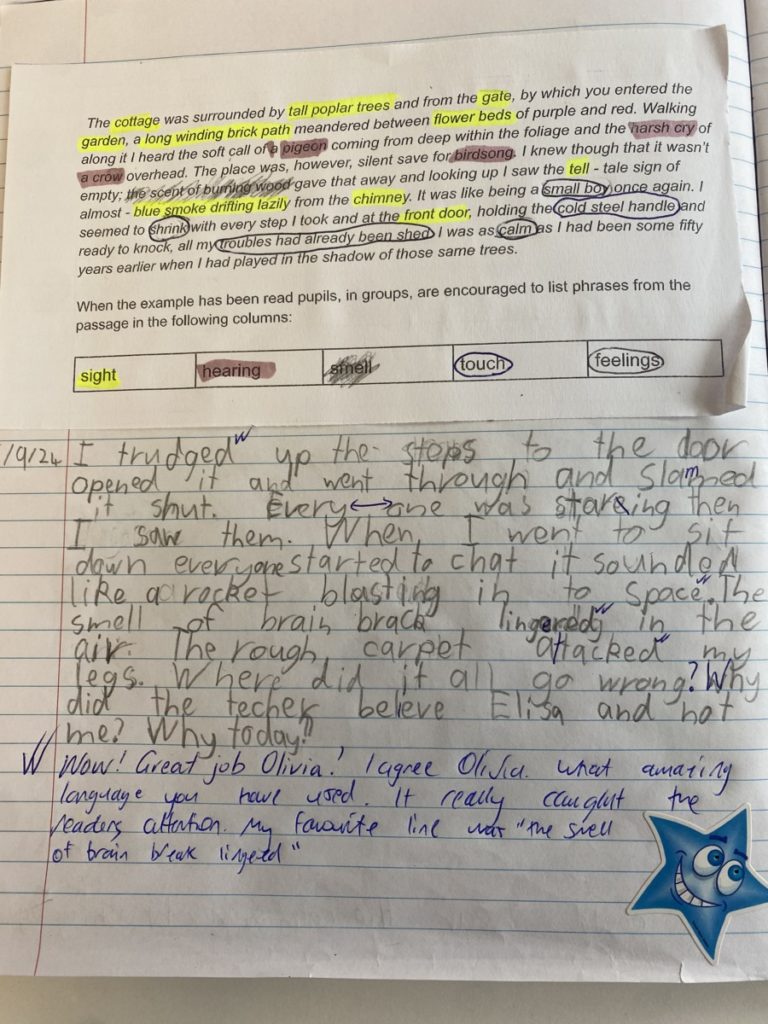 The cottage was surrounded by tall poplar trees and from the gate, by which you entered the
garden, a long winding brick path meandered between flower beds of purple and red. Walking
along it I heard the soft call of a pigeon coming from deep within the foliage and the harsh cry of
a crow overhead. The place was, however, silent save for birdsong. I knew though that it wasn't
empty; the scent of burning wood gave that away and looking up I saw the tell - tale sign of
almost - blue smoke drifting lazily from the chimney. It was like being a small boy once again. I
seemed to shrink with every step I took and at the front door, holding the cold steel handle and
ready to knock, all my troubles had already been shed. I was as calm as I had been some fifty
years earlier when I had played in the shadow of those same trees.
When the example has been read pupils, in groups, are encouraged to list phrases from the
passage in the following columns:
sight hearing smell touch feelings
/9/24 I trudged up the stops to the door
opened it and went through and slammed
it shut. Every one was stareing then
I saw them. When I went to sit
down everyone started to chat it sounded
like a rocket blasting in to space. The
smell of brain brack lingered in the
air. The rough carpet attacked my
legs. Where did it all go wrong? Why
did the techer beleve Elisa and not
me? Why today?
W Wow! Great job Olivia! I agree Olivia. What amazing
language you have used. It really caught the
readers attention. My favourite line was "the smell
of brain break lingered"